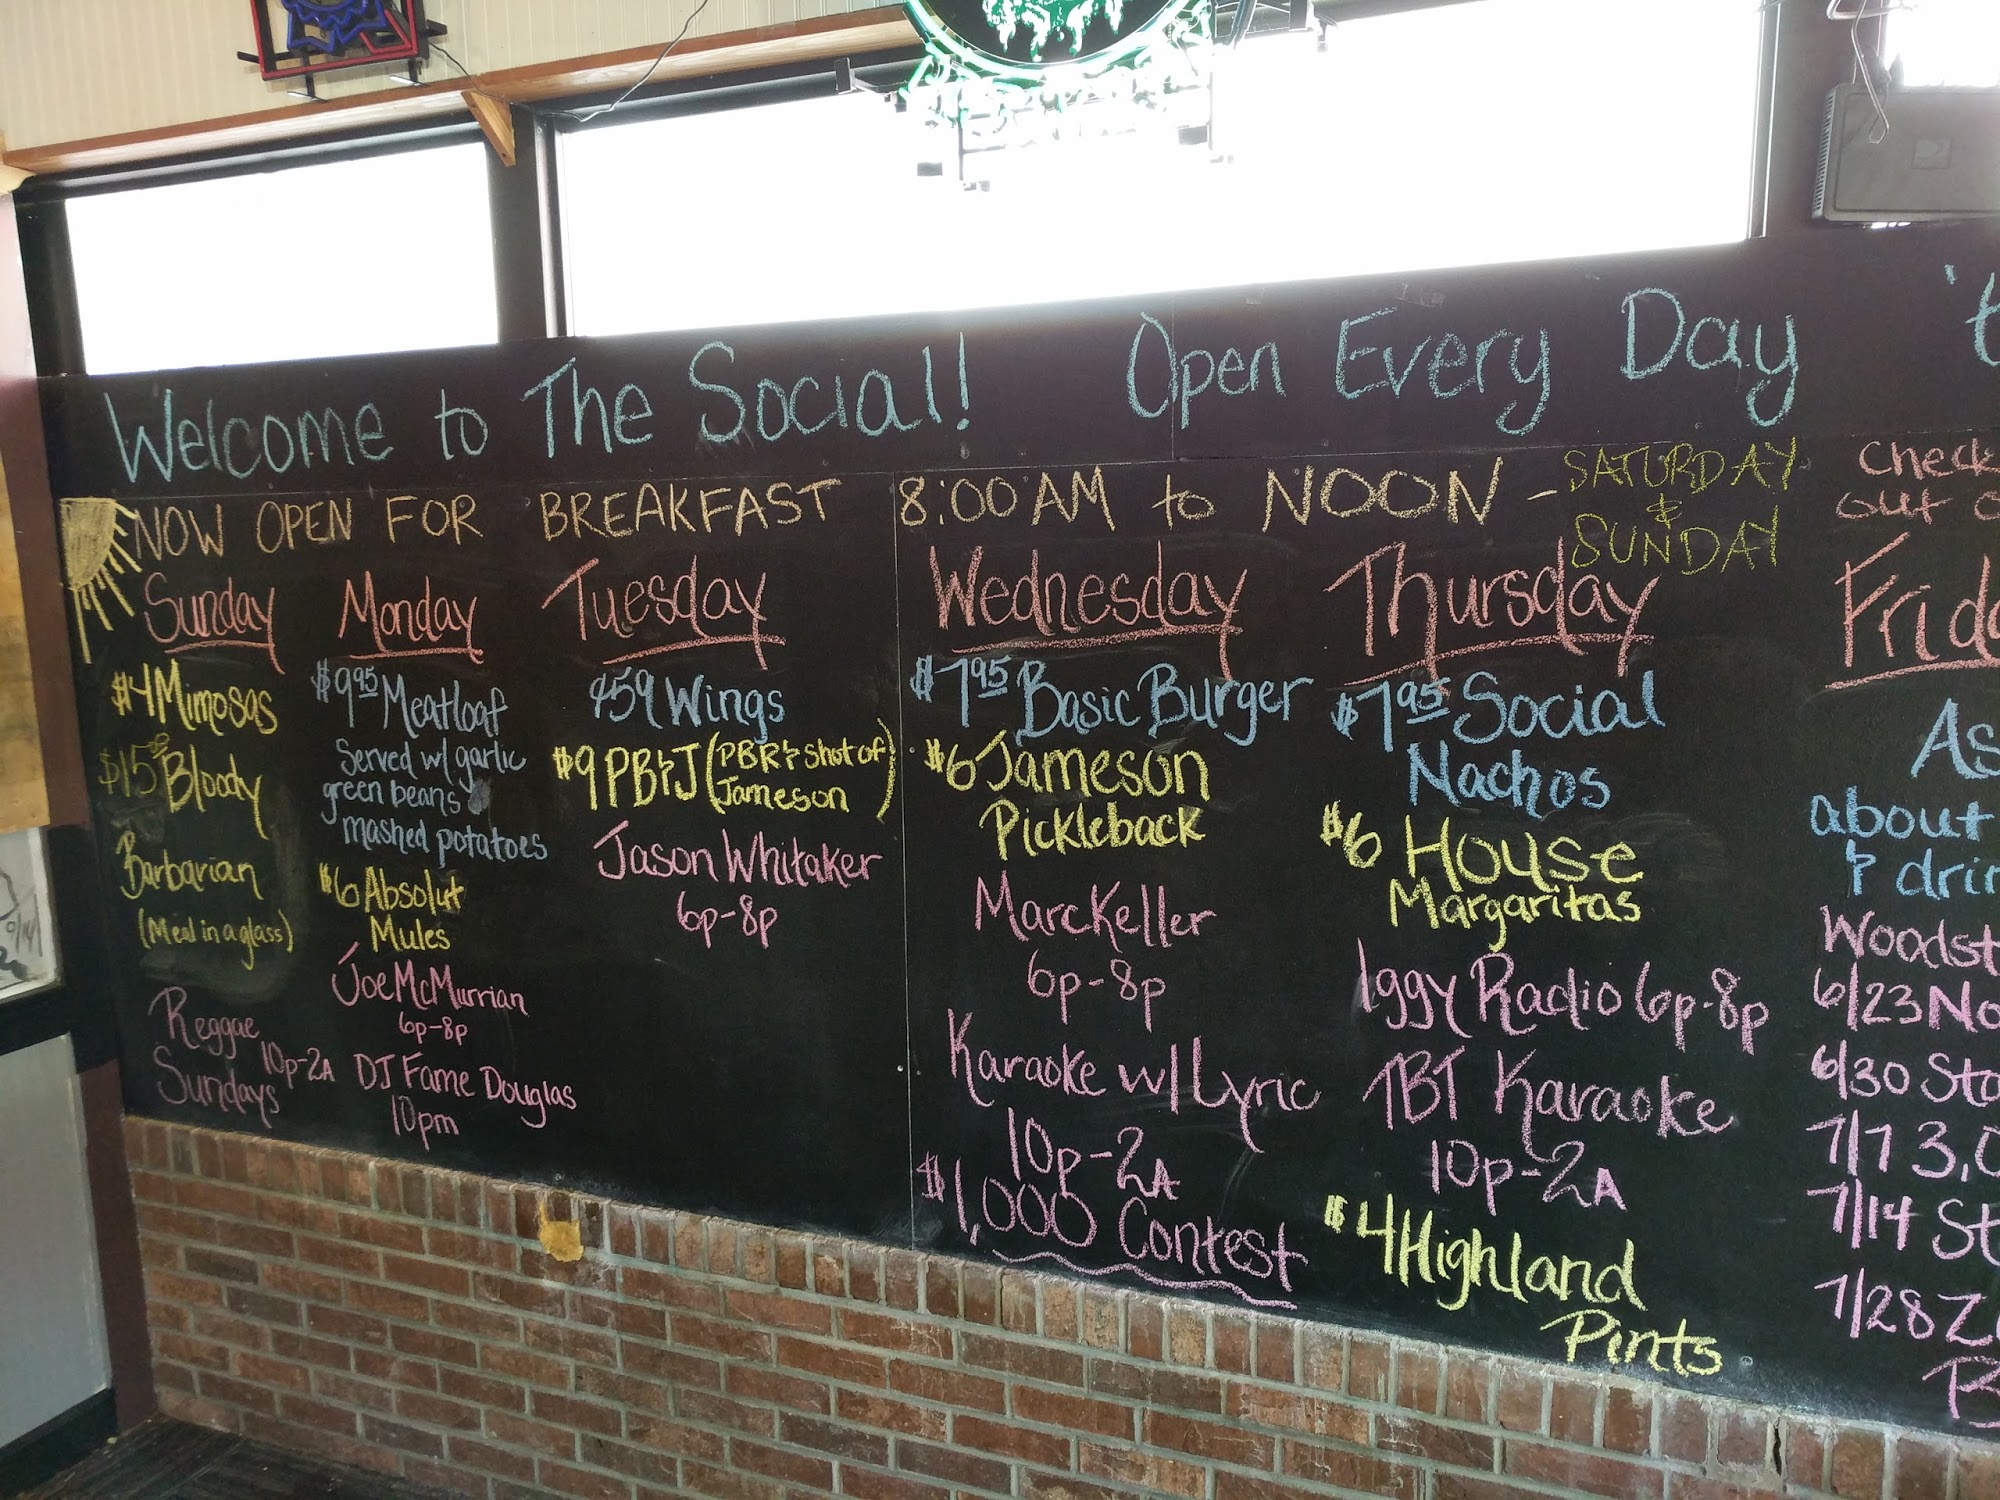 Welcome to The Social! Open Every Day
NOW OPEN FOR BREAKFAST 8:00AM to NOON - SATURDAY
&
SUNDAY
Sunday
$4 Mimosas
$15 Bloody
Barbarian
(Meal in a glass)
Reggae
Sundays 10p-2A
Monday
$9.95 Meatloaf
Served w/ garlic
green beans
mashed potatoes
$6 Absolut
Mules
Joe McMurrian
6p-8p
DJ Fame Douglas
10pm
Tuesday
$.59 Wings
$9 PB&J (PBR & shot of
Jameson)
Jason Whitaker
6p-8p
Wednesday
$7.95 Basic Burger
$6 Jameson
Pickleback
Marc Keller
6p-8p
Karaoke w/ Lyric
10p-2A
$1,000 Contest
Thursday
$7.95 Social
Nachos
$6 House
Margaritas
Iggy Radio 6p-8p
TBT Karaoke
10p-2A
$4 Highland
Pints
Check
out
about
&
6/23
6/30
7/7
7/14
7/28